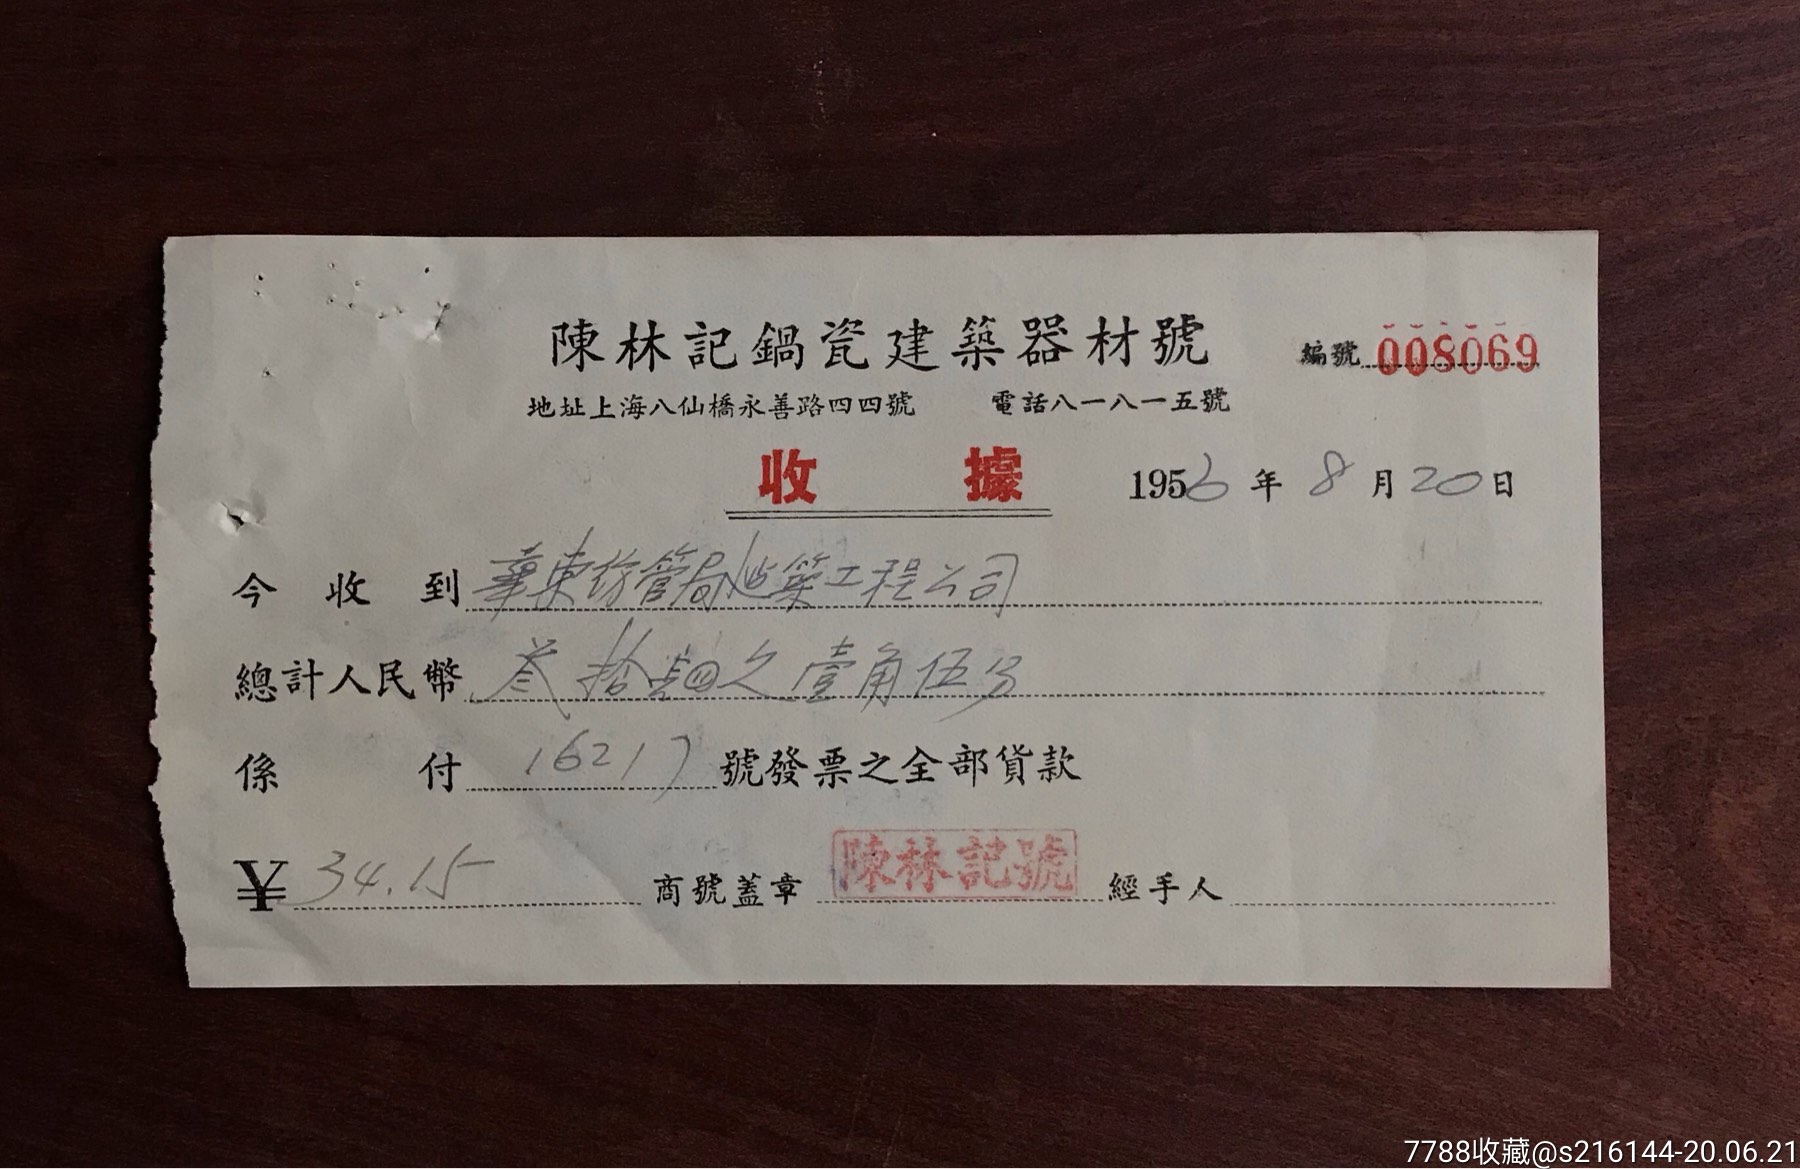 陳林記鍋瓷建築器材號
編號 008069
地址上海八仙橋永善路四四號 電話八一八一五號
收據
1956年8月20日
今收到 華東紡管局建築工程公司
總計人民幣 叁拾肆元壹角伍分
係付 16217 號發票之全部貨款
¥ 34.15 商號蓋章 陳林記號 經手人
7788收藏@s216144-20.06.21